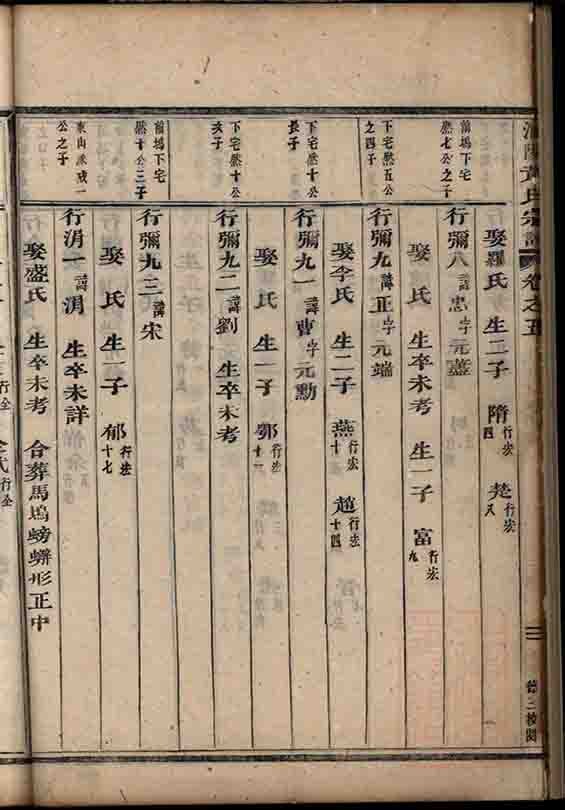 氏宗譜 卷之五 三 德三校閱
娶羅氏 生二子 隋行宏四 楚行宏八
前塢下宅愿七公之子
行彌八諱忠字元藎
娶 氏 生卒未考 生一子 富行宏九
下宅愿五公之四子
行彌九諱正字元端
娶李氏 生二子 燕行宏十 趙行宏十四
下宅愿十公長子
行彌九一諱曹字元勳
娶 氏 生一子 鄂行宏十一
下宅愿十公次子
行彌九二諱劉 生卒未考
前塢下宅愿十公三子
行彌九三諱宋
娶 氏 生一子 郁行宏十七
東山派戒一公之子
行涓一諱涓 生卒未詳
娶盛氏 生卒未考 合葬馬塢螃蠏形正中